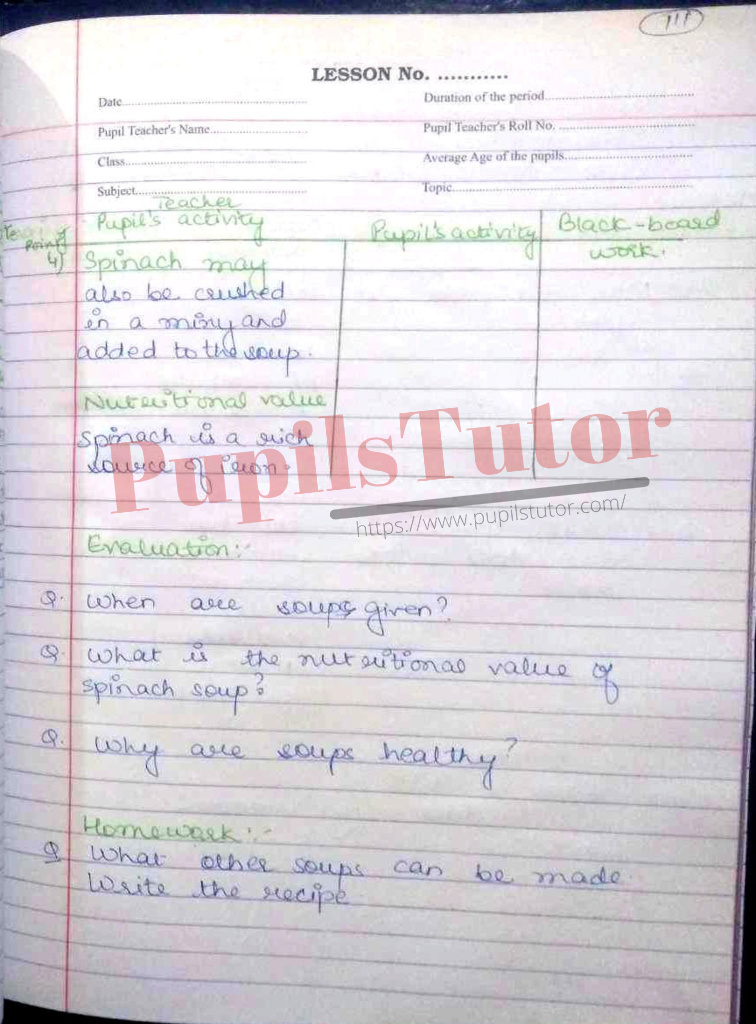 111
LESSON No. ...........
Date....................................................
Duration of the period..........................................
Pupil Teacher's Name............................
Pupil Teacher's Roll No. ......................................
Class....................................................
Average Age of the pupils....................................
Subject.................................................
Topic....................................................................
Teacher
Pupil's activity
Pupil's activity
Black-board
work.
Point
4)
Spinach may
also be crushed
in a mixy and
added to the soup.
Nutritional value
Spinach is a rich
source of iron.
PupilsTutor
https://www.pupilstutor.com/
Evaluation:-
Q. When are soups given?
Q. What is the nutritional value of
spinach soup?
Q. Why are soups healthy?
Homework:-
Q What other soups can be made.
Write the recipe